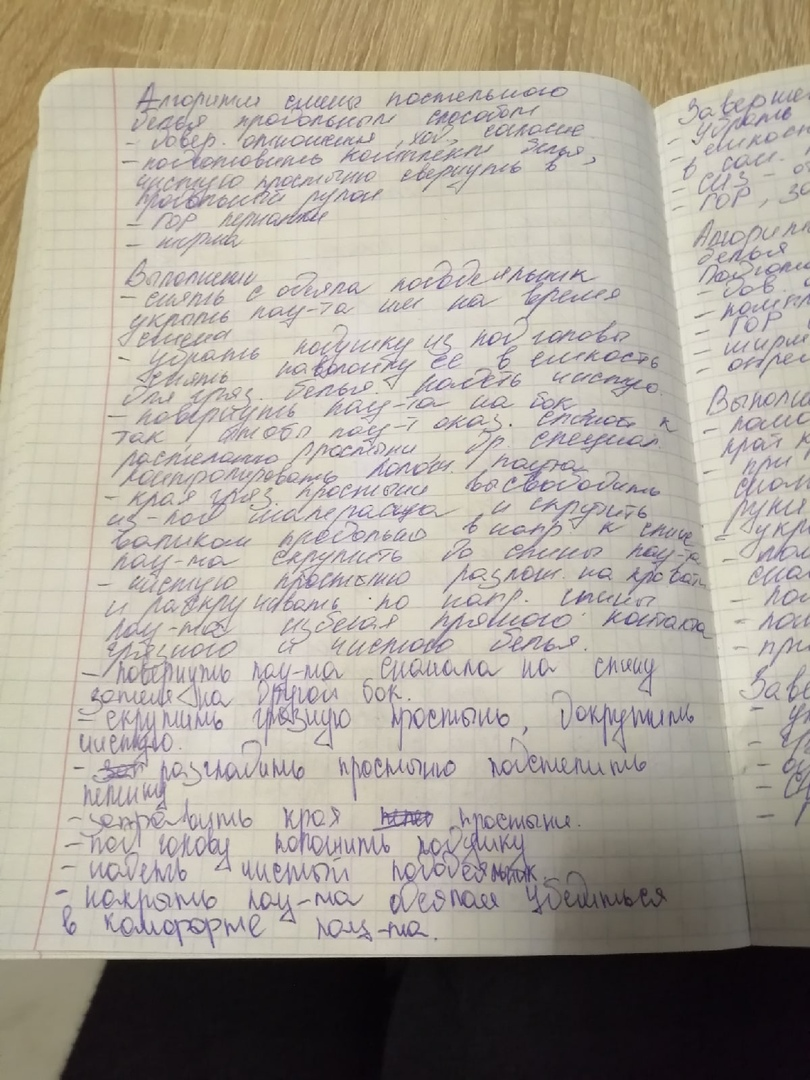 Алгоритм смены постельного
белья продольным способом
- довер. отношения, ход, согласие
- подготовить комплект белья,
чистую простыню свернуть в
продольный рулон
- ГОР перчатки
- ширма
Выполнение
- снять с одеяла пододеяльник
укрыть пац-та им на время
смены
- убрать подушку из под головы
снять наволочку ее в емкость
для гряз. белья. надеть чистую.
- повернуть пац-та на бок
так чтобы пац-т оказ. спиной к
простыни др. специал.
контролировать полож. пац-та
- края гряз. простыни высвободить
из-под матераца и скрутить
валиком продольно в напр. к спине
пац-та скрутить до спины пац-та
- чистую простыню разлож. на кровати
и раскручивать по напр. спины
пац-та избегая прямого контакта
грязного и чистого белья.
- повернуть пац-та сначала на спину
затем на другой бок.
- скрутить грязную простынь, докрутить
чистую.
- разгладить простыню подстелить
пеленку
- заправить края простыни.
- под голову положить подушку
- надеть чистый пододеяльник.
- накрыть пац-та одеялом убедиться
в комфорте пац-та.
Заверше
- убрать
- емкост
в сан.
- СИЗ -
- ГОР, за
Алгоритм
белья
- дов.
- компл
- ГОР
- ширм
Выполн
- пом
край к
- при
руки
- укр
Заве
- у